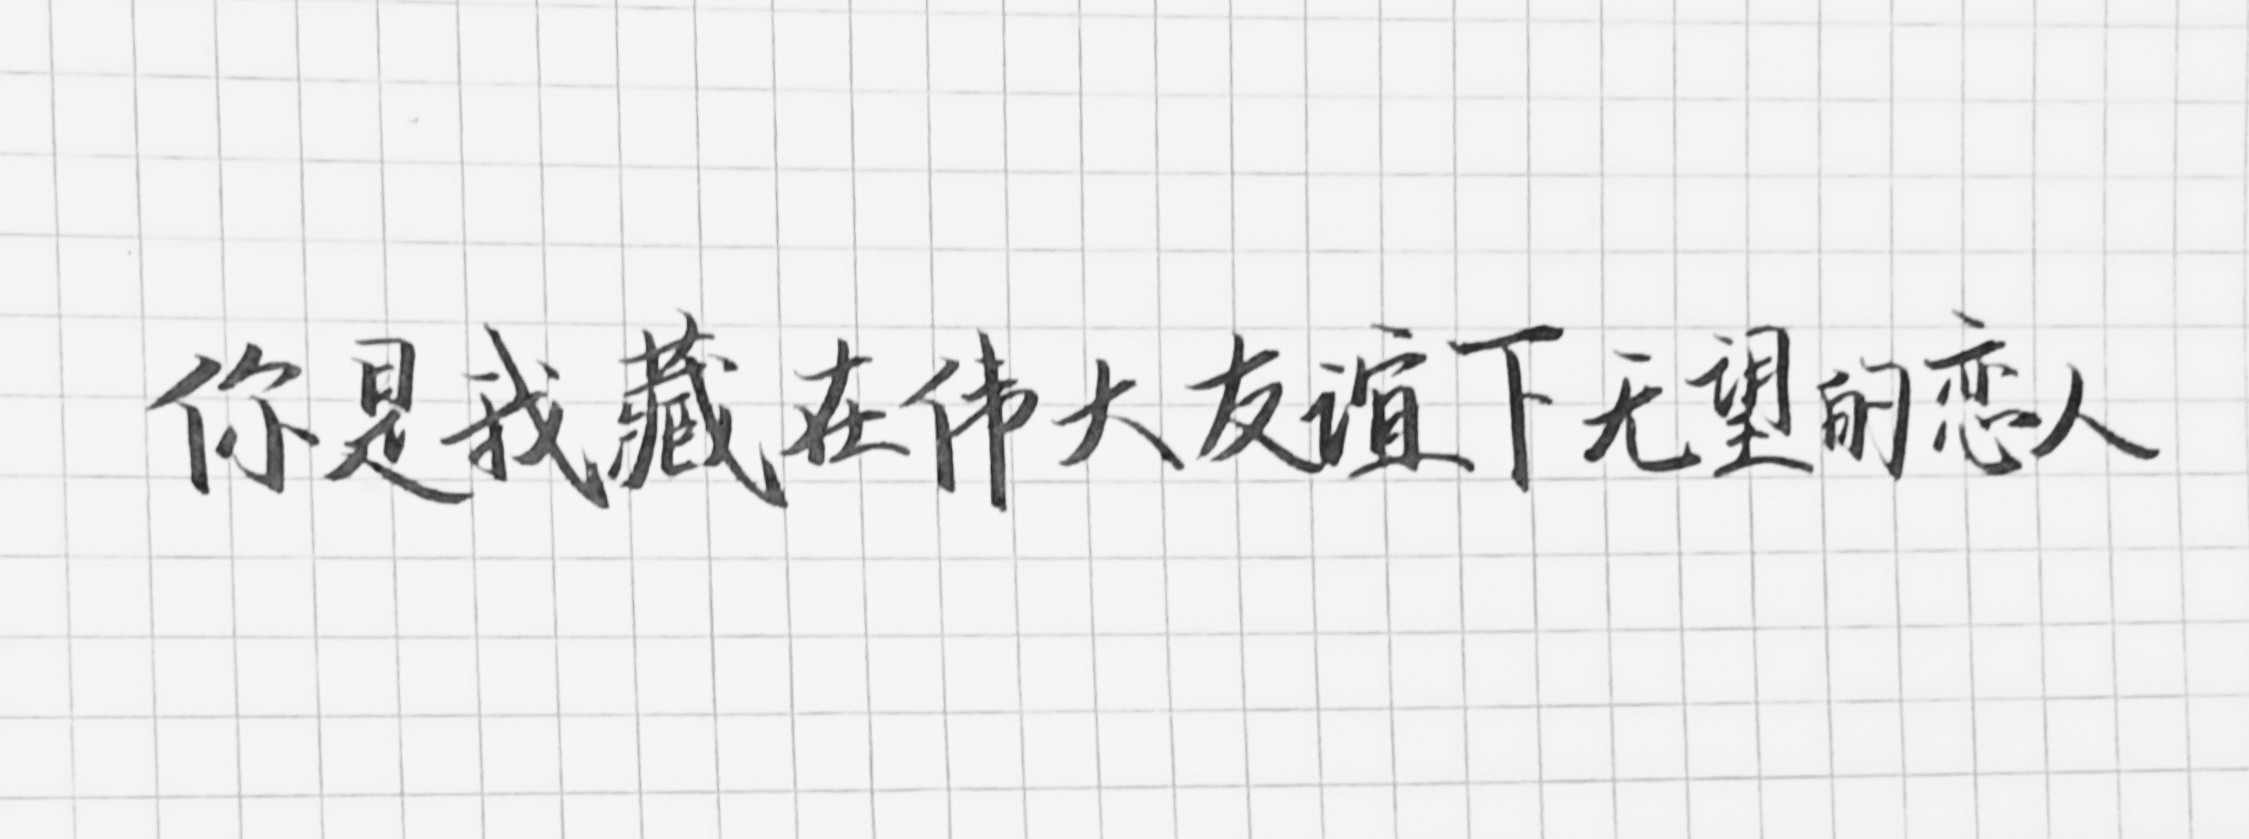 你是我藏在伟大友谊下无望的恋人